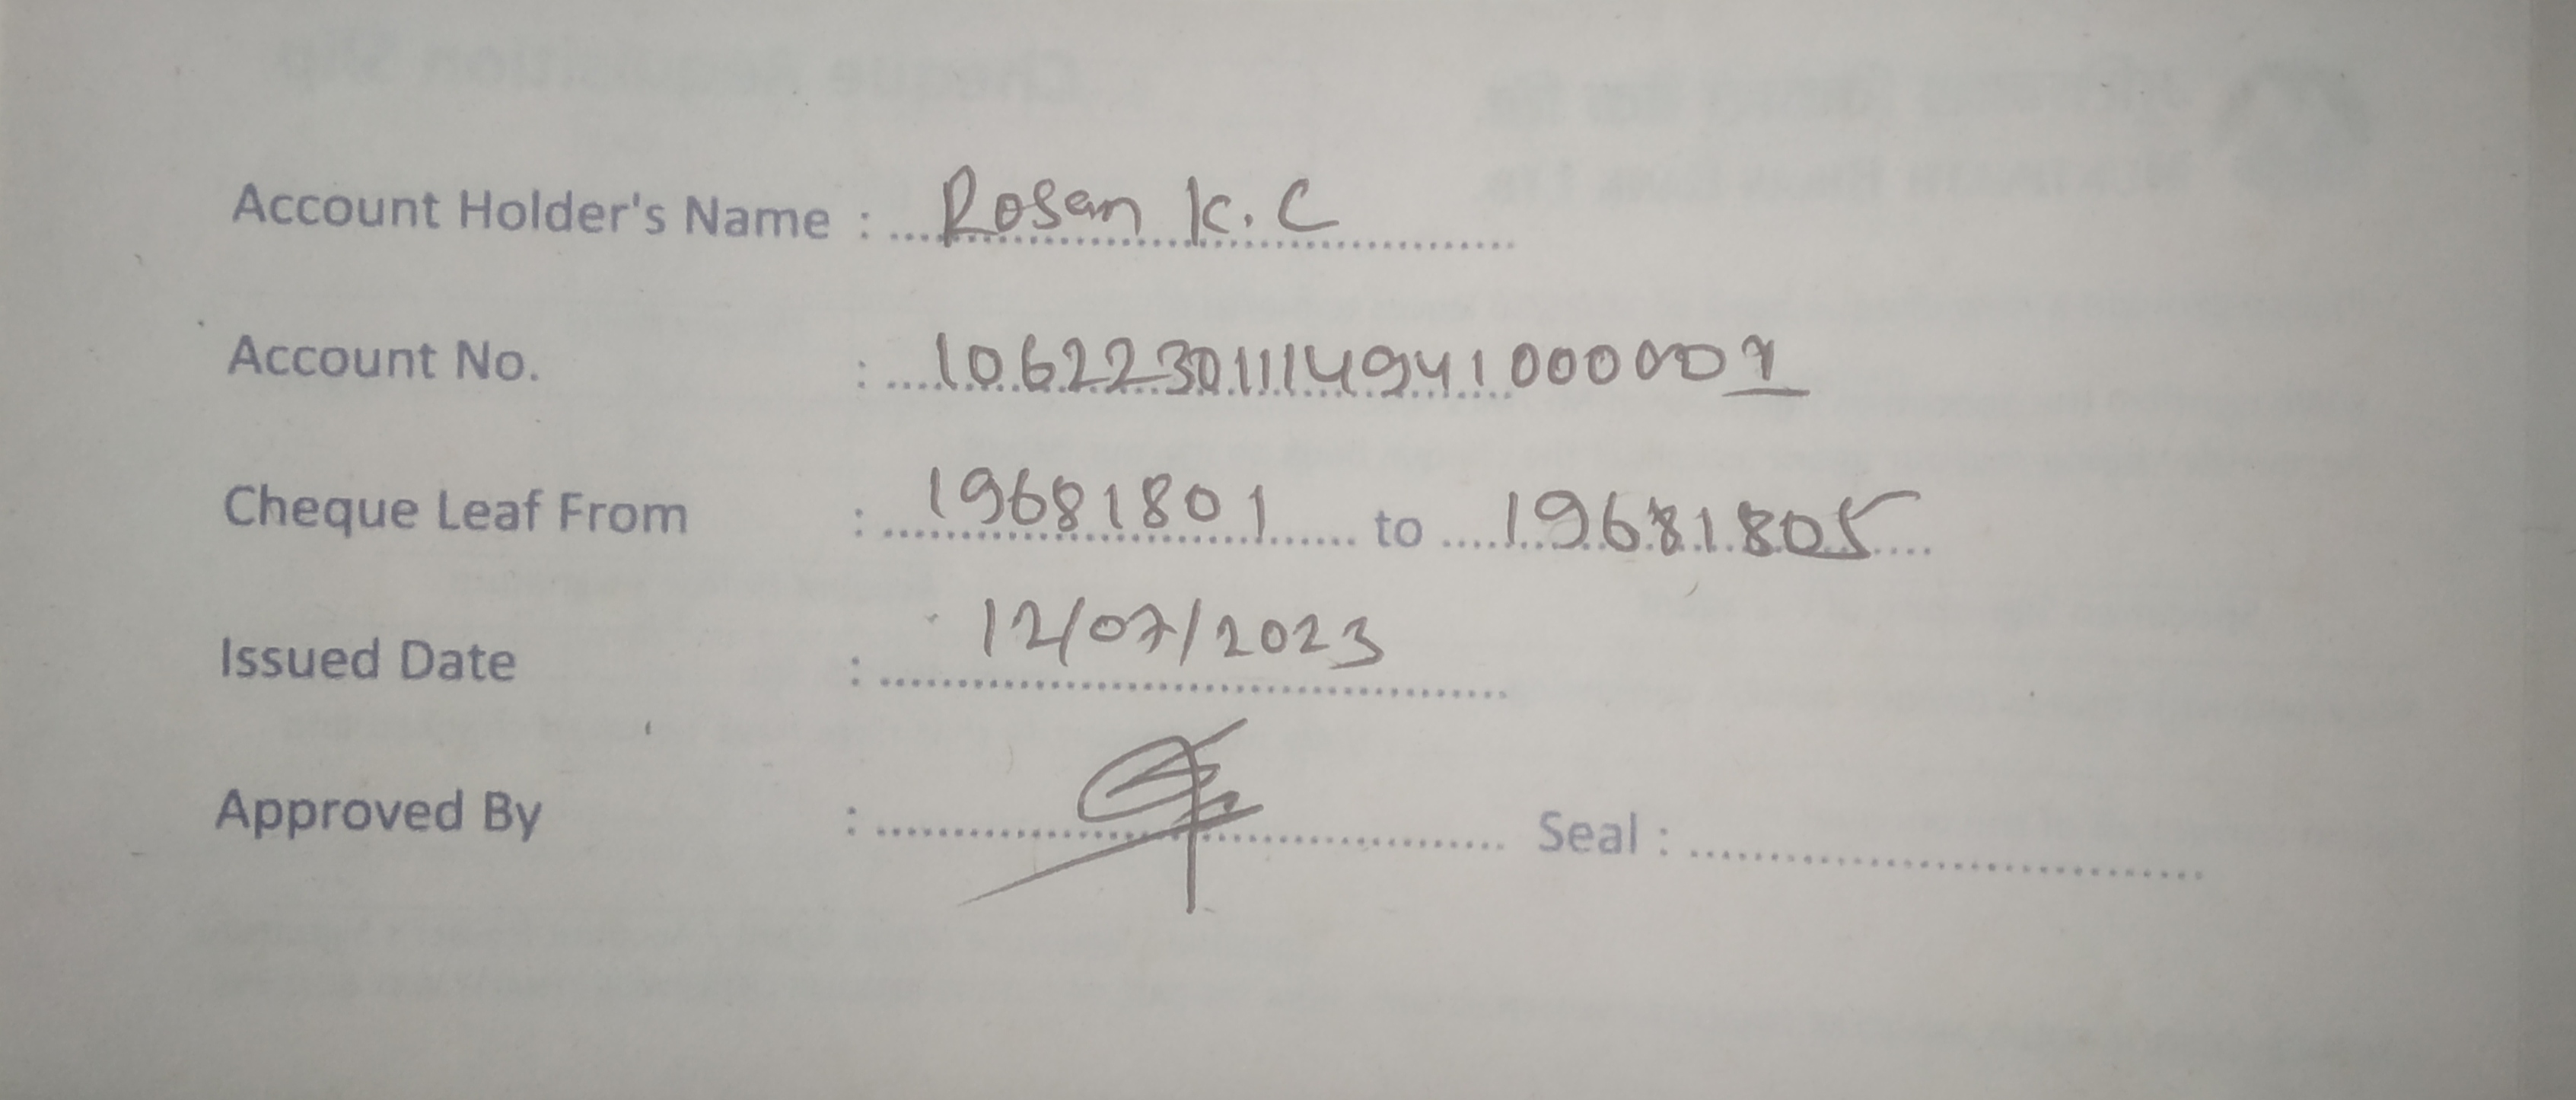 Account Holder's Name : Rosan K.C
Account No. : 10622301114941000001
Cheque Leaf From : 19681801 to 19681805
Issued Date : 12/07/2023
Approved By : Seal :